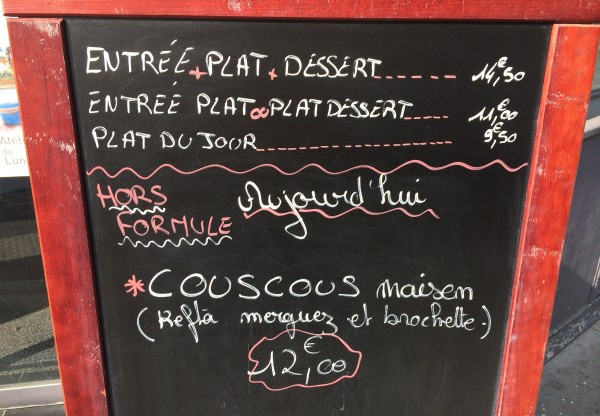 ENTRÉE + PLAT + DESSERT------ 14,50€
ENTREÉ PLAT ou PLAT DESSERT----- 11,00€
PLAT DU JOUR------------------ 9,50€
HORS
FORMULE
Aujourd'hui
*COUSCOUS maison
(Kefta merguez et brochette.)
12,00€
Atel
du
Lun